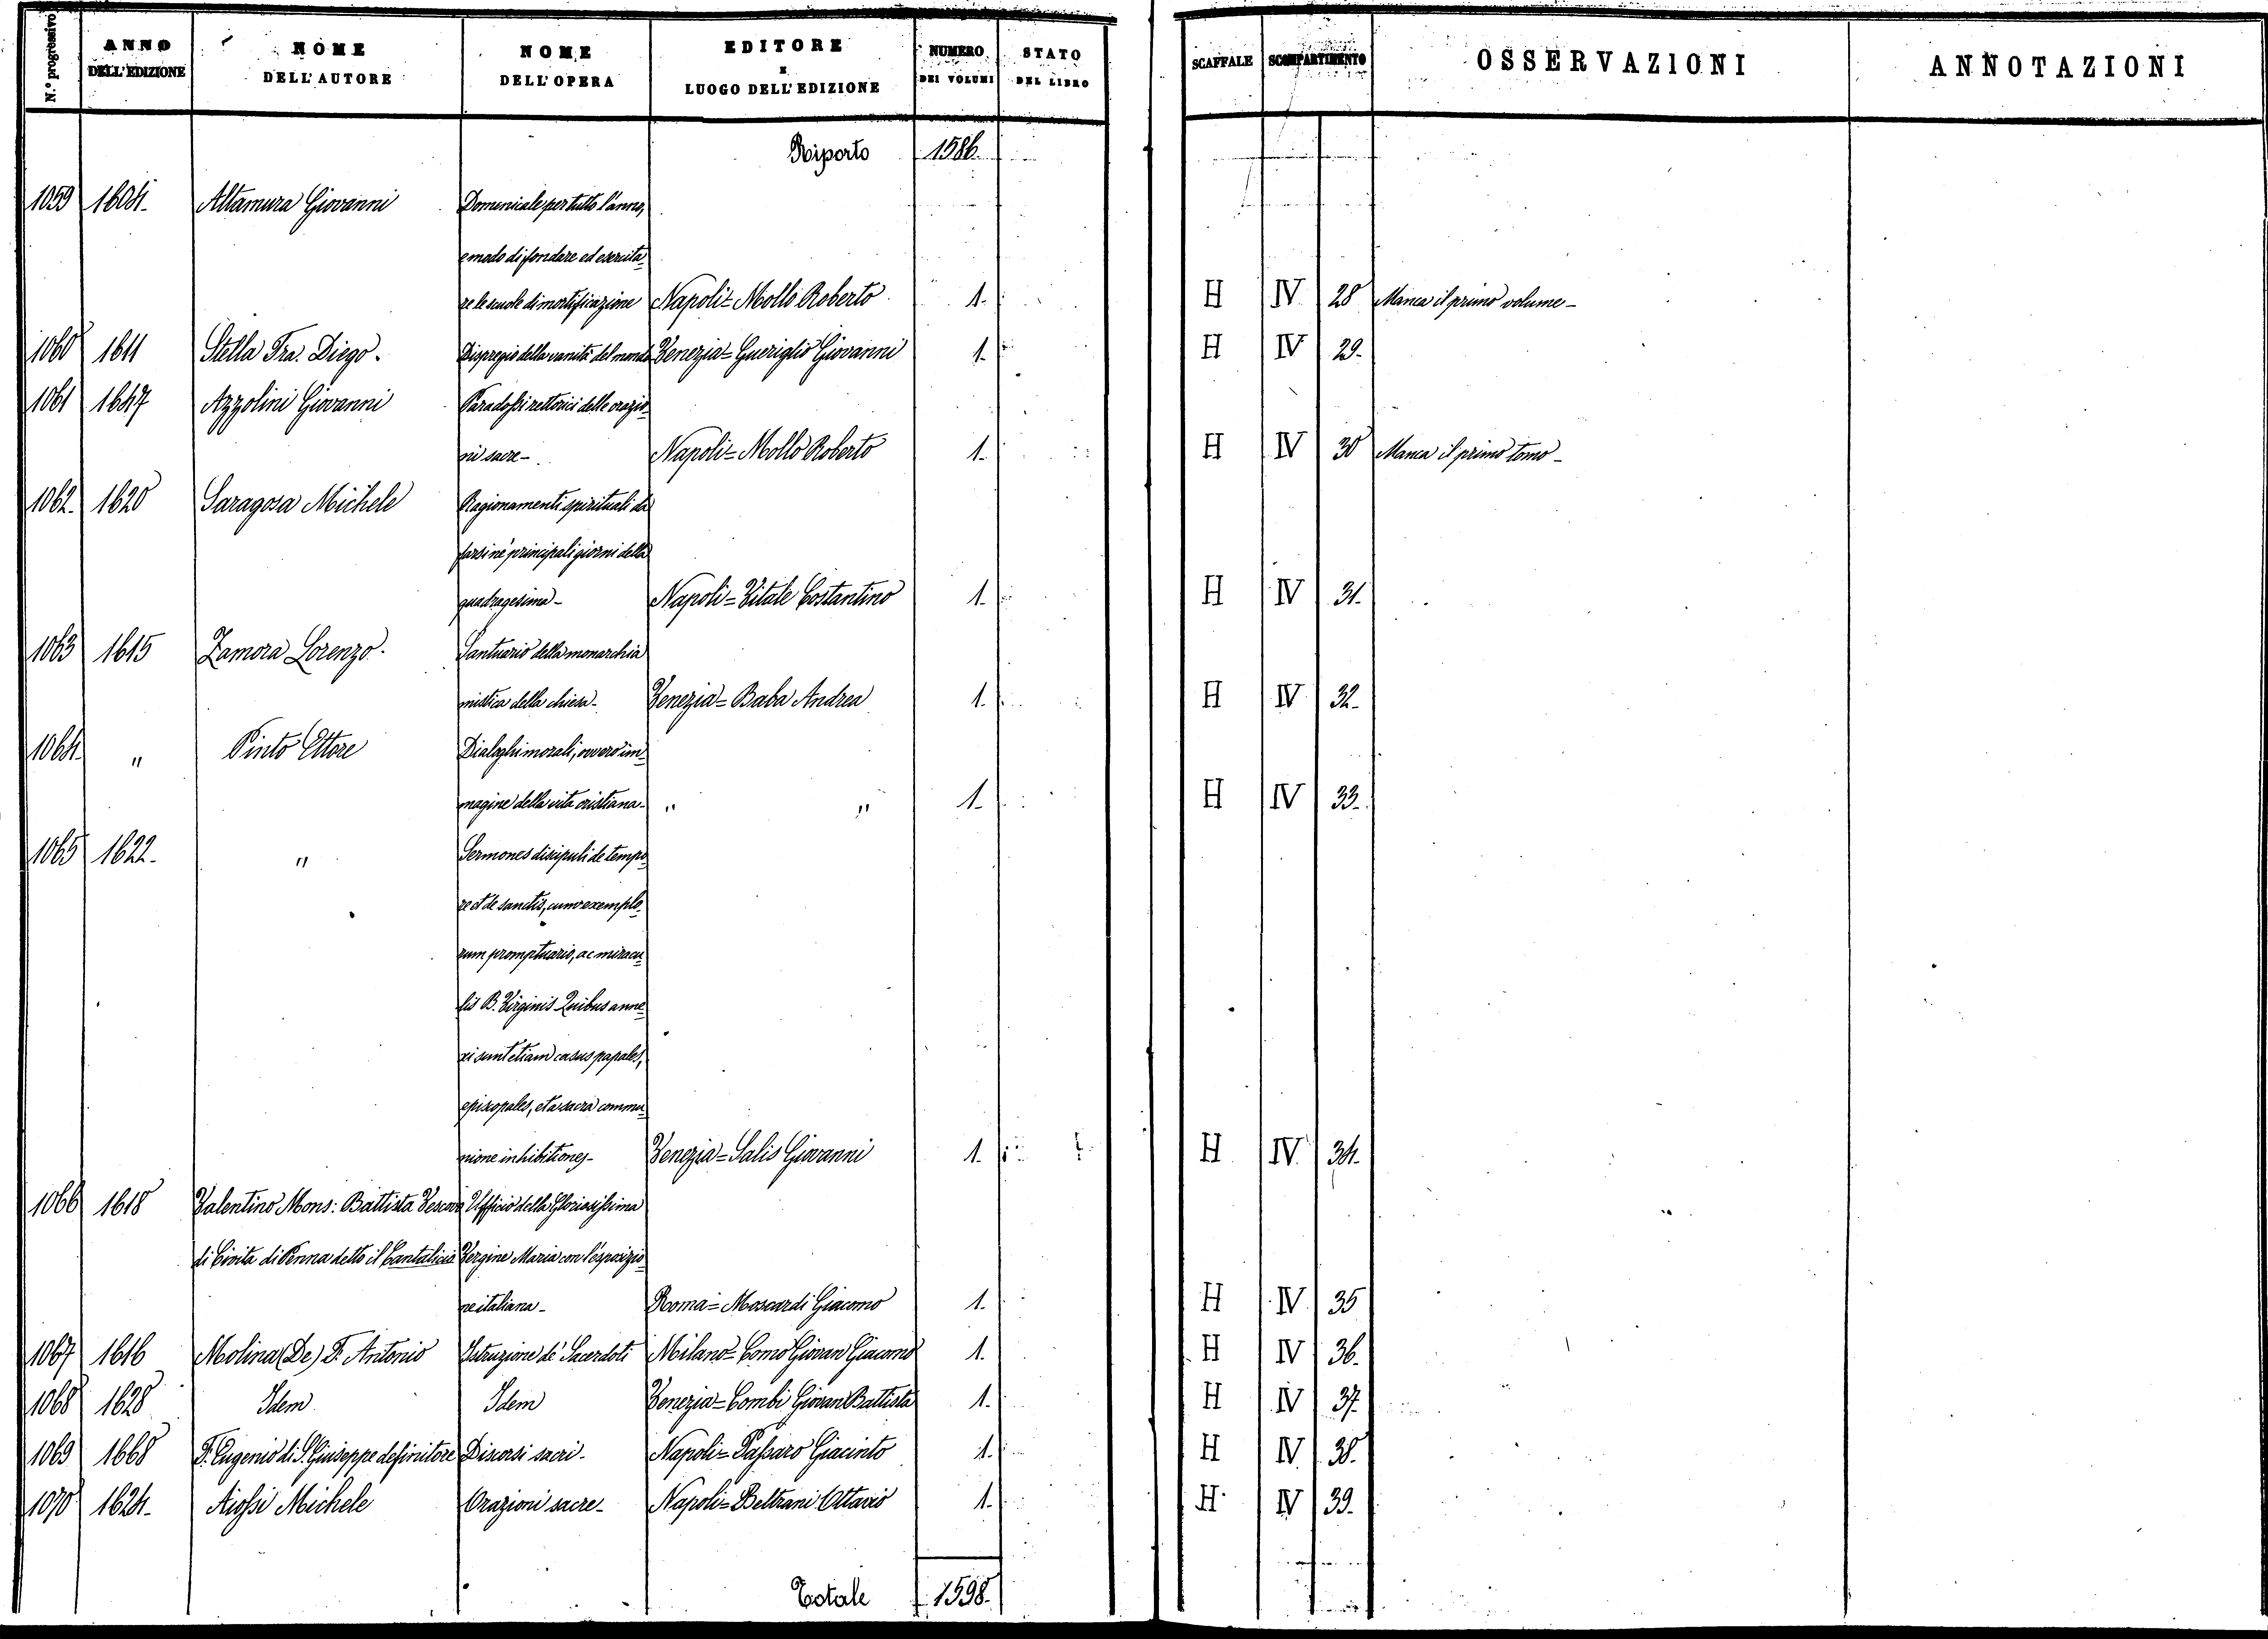 N.º progressivo | ANNO DELL'EDIZIONE | NOME DELL'AUTORE | NOME DELL'OPERA | EDITORE E LUOGO DELL'EDIZIONE | NUMERO DEI VOLUMI | STATO DEL LIBRO | SCAFFALE | SCOMPARTIMENTO | OSSERVAZIONI | ANNOTAZIONI
Riporto 1586.
1059 1604. Altamura Giovanni Domenicale per tutto l'anno,
e modo di fondare ed esercita=
re le scuole di mortificazione Napoli = Mollo Roberto 1. H IV 28 Manca il primo volume -
1060 1611 Stella Fra. Diego. Dispregio della vanità del mondo Venezia = Gueriglio Giovanni 1. H IV 29.
1061 1647 Azzolini Giovanni Paradossi rettorici delle orazio=
ni sacre - Napoli = Mollo Roberto 1. H IV 30 Manca il primo tomo -
1062. 1620 Saragosa Michele Ragionamenti spirituali da
farsi ne' principali giorni della
quadragesima - Napoli = Vitale Costantino 1. H IV 31.
1063 1615 Zamora Lorenzo. Santuario della monarchia
mistica della chiesa - Venezia = Baba Andrea 1. H IV 32.
1064. " Pinto Ettore Dialoghi morali, ovvero im=
magine della vita cristiana. " " 1. H IV 33.
1065 1622. " Sermones discipuli de tempo=
re et de sanctis, cum exemplo=
rum promptuario, ac miracu=
lis B. Virginis Quibus anne=
xi sunt etiam casus papales,
episcopales, et a sacra commu=
nione inhibitiones - Venezia = Salis Giovanni 1. H IV 34.
1066 1618 Valentino Mons: Battista Vescovo Ufficio della Gloriosissima
di Civita di Penna detto il Cantalicio Vergine Maria con l'esposizio=
ne italiana - Roma = Mascardi Giacomo 1. H IV 35
1067 1616 Molina (De) F. Antonio Istruzione de' Sacerdoti Milano = Como Giovan Giacomo 1. H IV 36.
1068 1628 Idem Idem Venezia = Combi Giovan Battista 1. H IV 37.
1069 1668 F. Eugenio di S. Giuseppe definitore Discorsi sacri - Napoli = Passaro Giacinto 1. H IV 38.
1070 1624. Aiossi Michele Orazioni sacre - Napoli = Beltrani Ottavio 1. H IV 39.
Totale 1598.